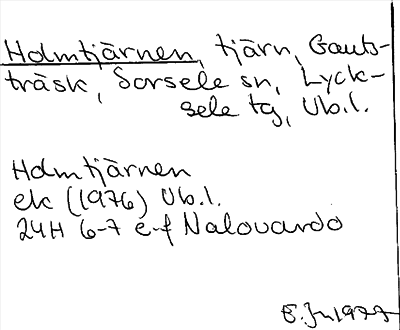 Holmtjärnen, tjärn, Gauts-
träsk, Sorsele sn, Lyck-
sele tg, Vb.l.
Holmtjärnen
ek (1976) Vb.l.
24H 6-7 e-f Nalovardo
1977